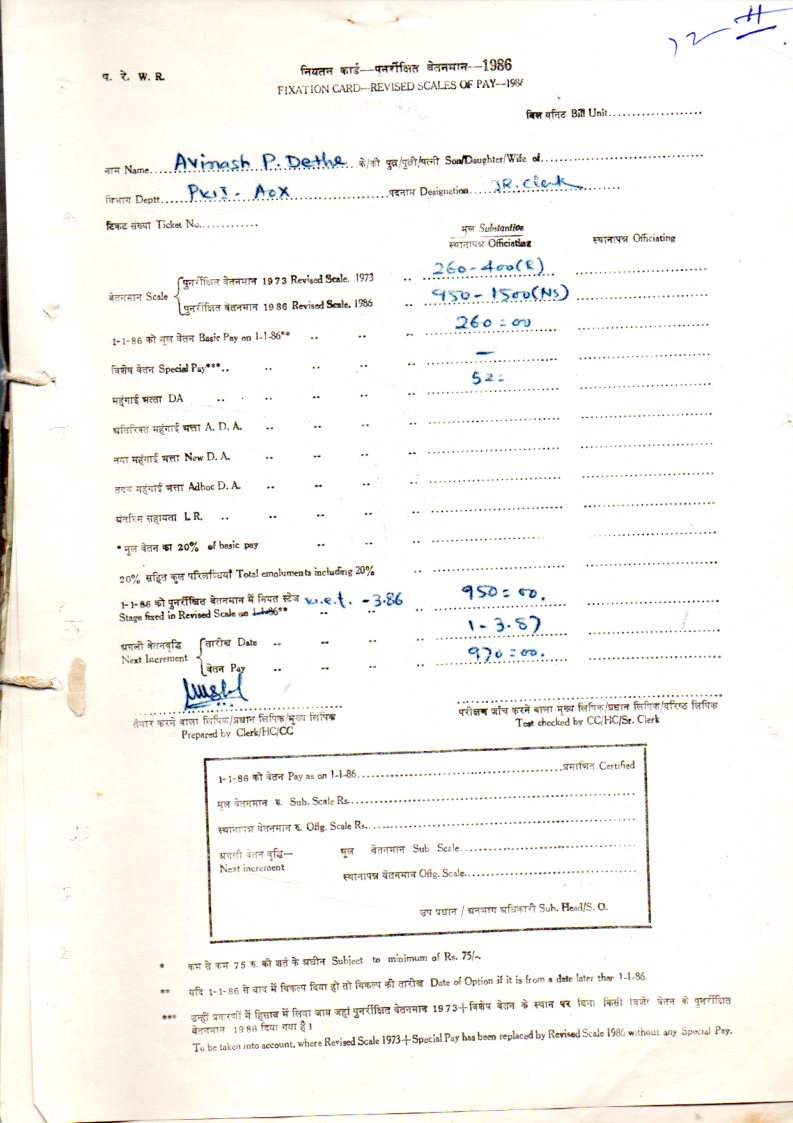 प. रे. W. R.
नियतन कार्ड—पुनर्रीक्षित वेतनमान—1986
FIXATION CARD—REVISED SCALES OF PAY—1986
बिल यूनिट Bill Unit
नाम Name Avinash P. Dethe के/की पुत्र/पुत्री/पत्नी Son/Daughter/Wife of
विभाग Deptt. पदनाम Designation JR. Clerk
टिकट संख्या Ticket No.
मूल Substantive
स्थानापन्न Officiating स्थानापन्न Officiating
वेतनमान Scale
पुनर्रीक्षित वेतनमान 1973 Revised Scale. 1973 260-400(R)
पुनर्रीक्षित वेतनमान 1986 Revised Scale. 1986 950-1500(NS)
1-1-86 को मूल वेतन Basic Pay on 1-1-86** 260=00
विशेष वेतन Special Pay***.. —
महंगाई भत्ता DA 52=
अतिरिक्त महंगाई भत्ता A. D. A.
नया महंगाई भत्ता New D. A.
तदर्थ महंगाई भत्ता Adhoc D. A.
अंतरिम सहायता I. R.
* मूल वेतन का 20% of basic pay
20% सहित कुल परिलब्धियां Total emoluments including 20%
1-1-86 को पुनर्रीक्षित वेतनमान में नियत स्टेज w.e.f. -3.86 950=00.
Stage fixed in Revised Scale on 1-1-86**
अगली वेतनवृद्धि तारीख Date 1-3-87
Next Increment वेतन Pay 970=00.
तैयार करने वाला लिपिक/प्रधान लिपिक/मुख्य लिपिक
Prepared by Clerk/HC/CC
परीक्षण जाँच करने वाला मुख्य लिपिक/प्रधान लिपिक/वरिष्ठ लिपिक
Test checked by CC/HC/Sr. Clerk
1-1-86 को वेतन Pay as on 1-1-86 प्रमाणित Certified
मूल वेतनमान रु. Sub. Scale Rs.
स्थानापन्न वेतनमान रु. Offg. Scale Rs.
अगली वेतन वृद्धि— मूल वेतनमान Sub Scale
Next increment
स्थानापन्न वेतनमान Offg. Scale
उप प्रधान / अनुभाग अधिकारी Sub. Head/S. O.
* कम से कम 75 रु. की शर्त के अधीन Subject to minimum of Rs. 75/-
** यदि 1-1-86 से बाद में विकल्प दिया हो तो विकल्प की तारीख Date of Option if it is from a date later than 1-1-86.
*** उन्हीं प्रकरणों में हिसाब में लिया जाय जहां पुनर्रीक्षित वेतनमान 1973+विशेष वेतन के स्थान पर बिना किसी विशेष वेतन के पुनर्रीक्षित
वेतनमान 1986 दिया गया है।
To be taken into account, where Revised Scale 1973+Special Pay has been replaced by Revised Scale 1986 without any Special Pay.